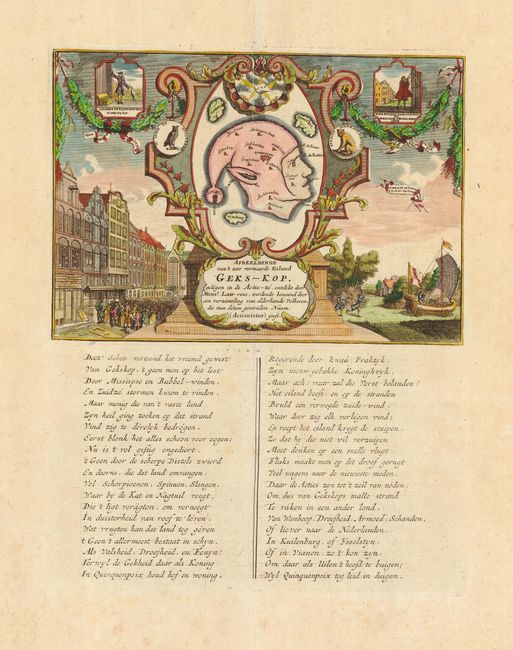 AFBEELDINGE
van't zeer vermaarde Eiland
GEKS-KOP.
geligen in de Actie-ze, ontdekt door
Mons.r Lau-rens, werdende bewoond door
een verzameling van alderhande Volkeren,
die men dezen generalen Naam
(Actionisten) geeft.
Deez' Schets vertoond het vreemd gewest
Van Gekskop, 't geen men op het lest
Door Missisipse en Bubbel-winden,
En Zuidze stormen kwam te vinden.
Maar menig die van't vaste land
Zyn heil ging zoeken op dat strand
Vind zig te dérelyk bedrógen.
Eerst blonk het alles schoon voor oogen;
Nu is't vol giftig ongediert.
't Geen door de scherpe Distels zwierd
En doorns, die dat land omvangen.
Vol Schorpioenen, Spinnen, Slangen,
Waar by de Kat en Nagtuil voegt,
Die't ligt veragten, om vernoegt
In duisterheid van roof te léven.
Wat vrugten kan dat land tog géven
't Geen't allermeest bestaat in schyn,
Als Valsheid, Droefheid, en Fenyn?
Terwyl de Gekheid daar als Koning
In Quinquenpoix houd hof en woning.
Regerende door kwaa Praktyk.
Zyn nieuwgebakke Koninghryk.
Maar ach! waar zal die Vorst belanden!
Het eiland beeft: en op de stranden
Bruld een verwoede zuide-wind.
Waar door zig elk verlégen vind;
En roept het eiland krygt de stuipen.
Zo dat hy die niet wil verzuipen
Moet denken op een snelle vlugt
Fluks maakt men op dit droef gerugt
Veel wagens naar de nieuwste moden.
Daar de Acties zyn tot zeil van nóden.
Om dus van Gekskops malle strand
Te raken in een ander land.
Van Wanhoop, Droefheid, Armoed, Schanden,
Of liever naar de Nederlanden.
In Kuilenburg, of Ysselsten,
Of in Vianen, zo't kon zyn.
Om daar als Uilen't hoofd te buigen;
Wyl Quinquenpoix leg leid in duigen.